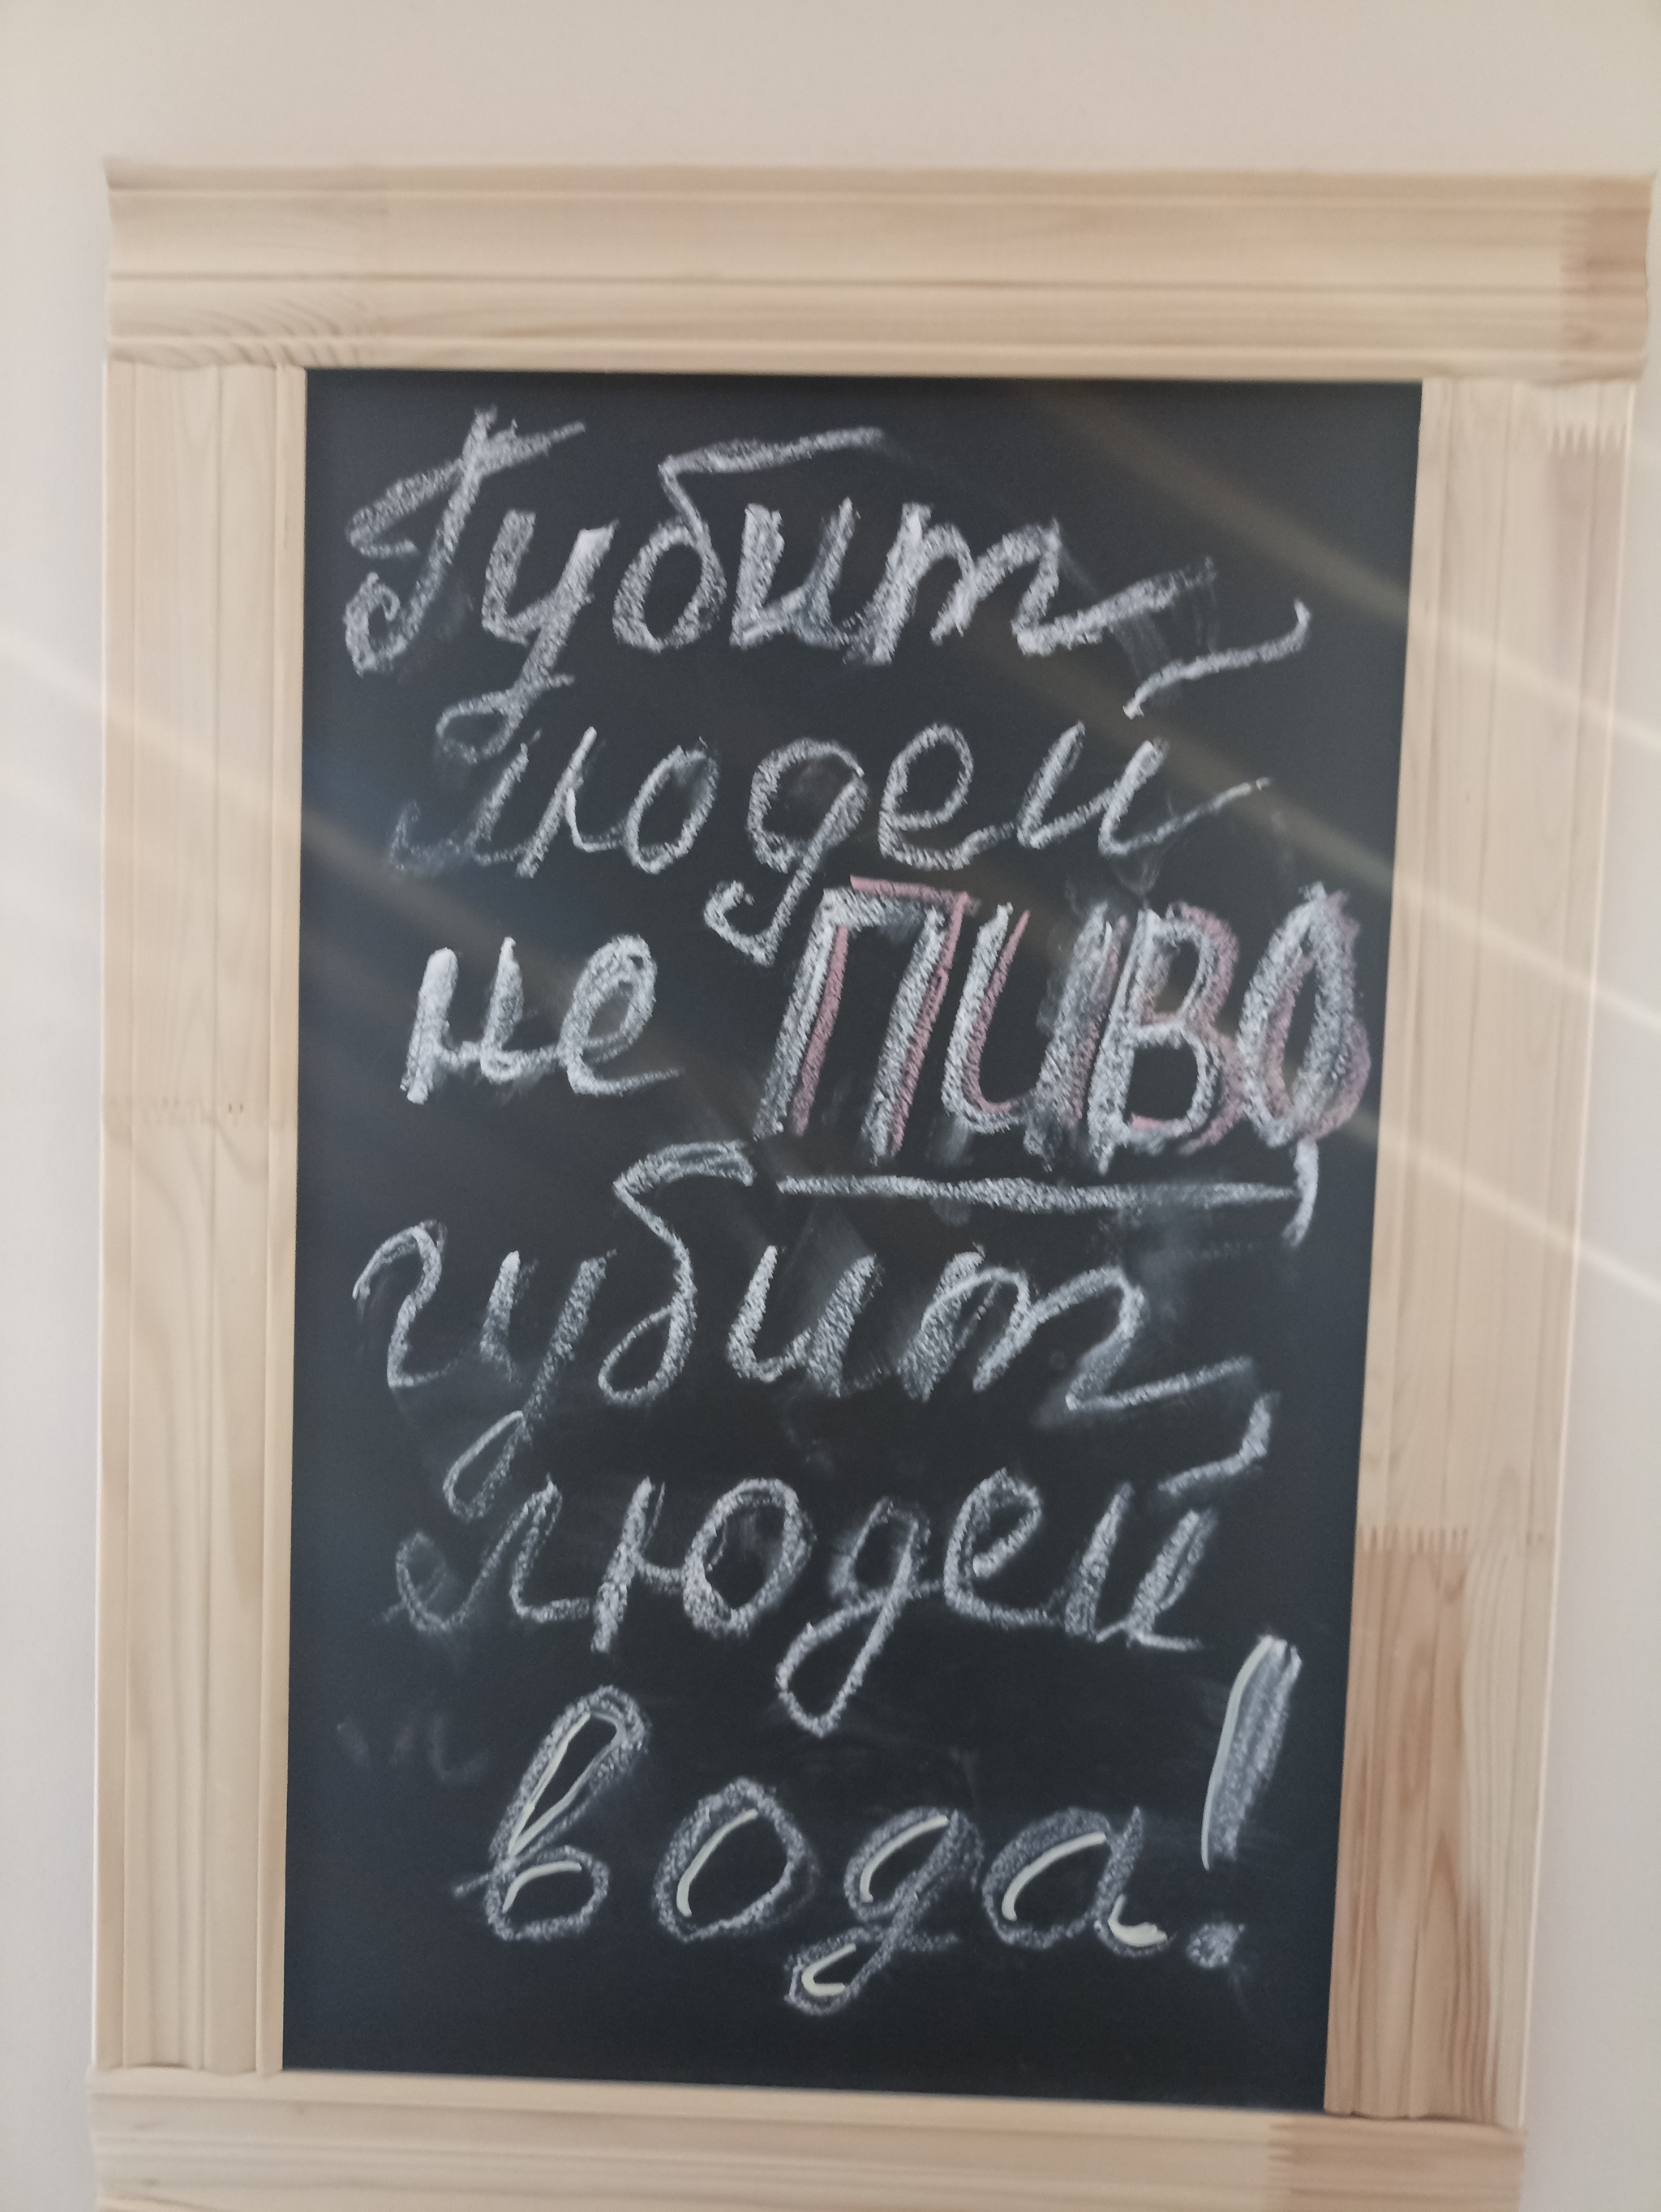 Губит
людей
не ПИВО,
губит
людей
вода!